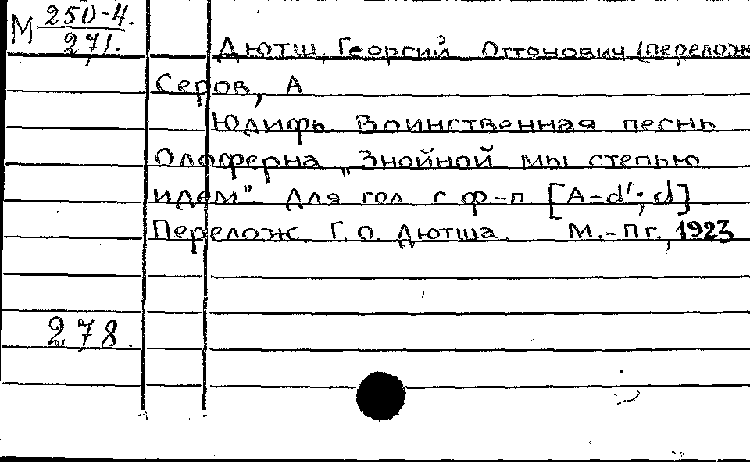 М 250-4.
271.
Дютш, Георгий Оттонович (перелож
Серов, А
Юдифь Воинственная песнь
Олоферна „Знойной мы степью
идем". Для гол с ф-п [A-d'; d]
Перелож. Г. О. Дютша. М.-Пг., 1923
278.